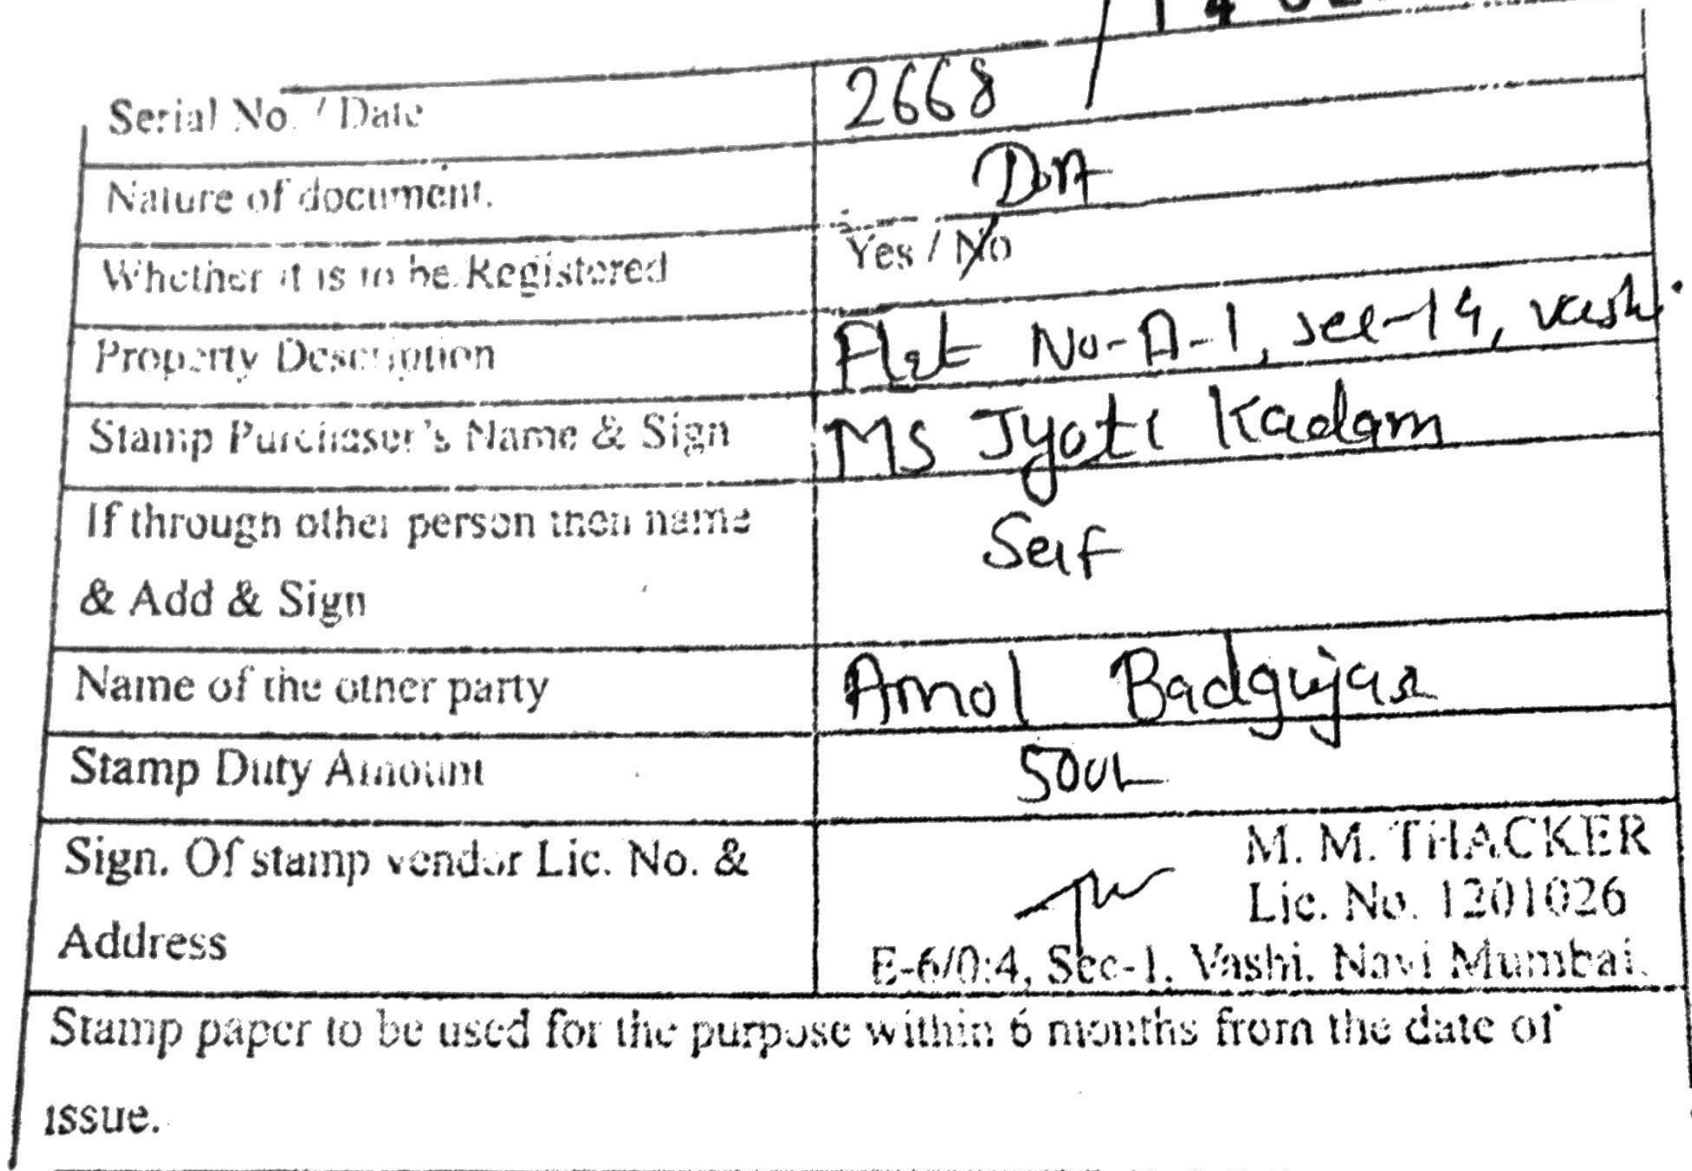 Serial No. / Date 2668 /
Nature of document. DOA
Whether it is to be Registered Yes / No
Property Description Flat No-A-1, sec-14, vashi.
Stamp Purchaser's Name & Sign MS Jyoti Kadam
If through other person then name
& Add & Sign Self
Name of the other party Amol Badgujar
Stamp Duty Amount 500/-
Sign. Of stamp vendor Lic. No. &
Address
M. M. THACKER
Lic. No. 1201026
E-6/0:4, Sec-1, Vashi, Navi Mumbai.
Stamp paper to be used for the purpose within 6 months from the date of
issue.